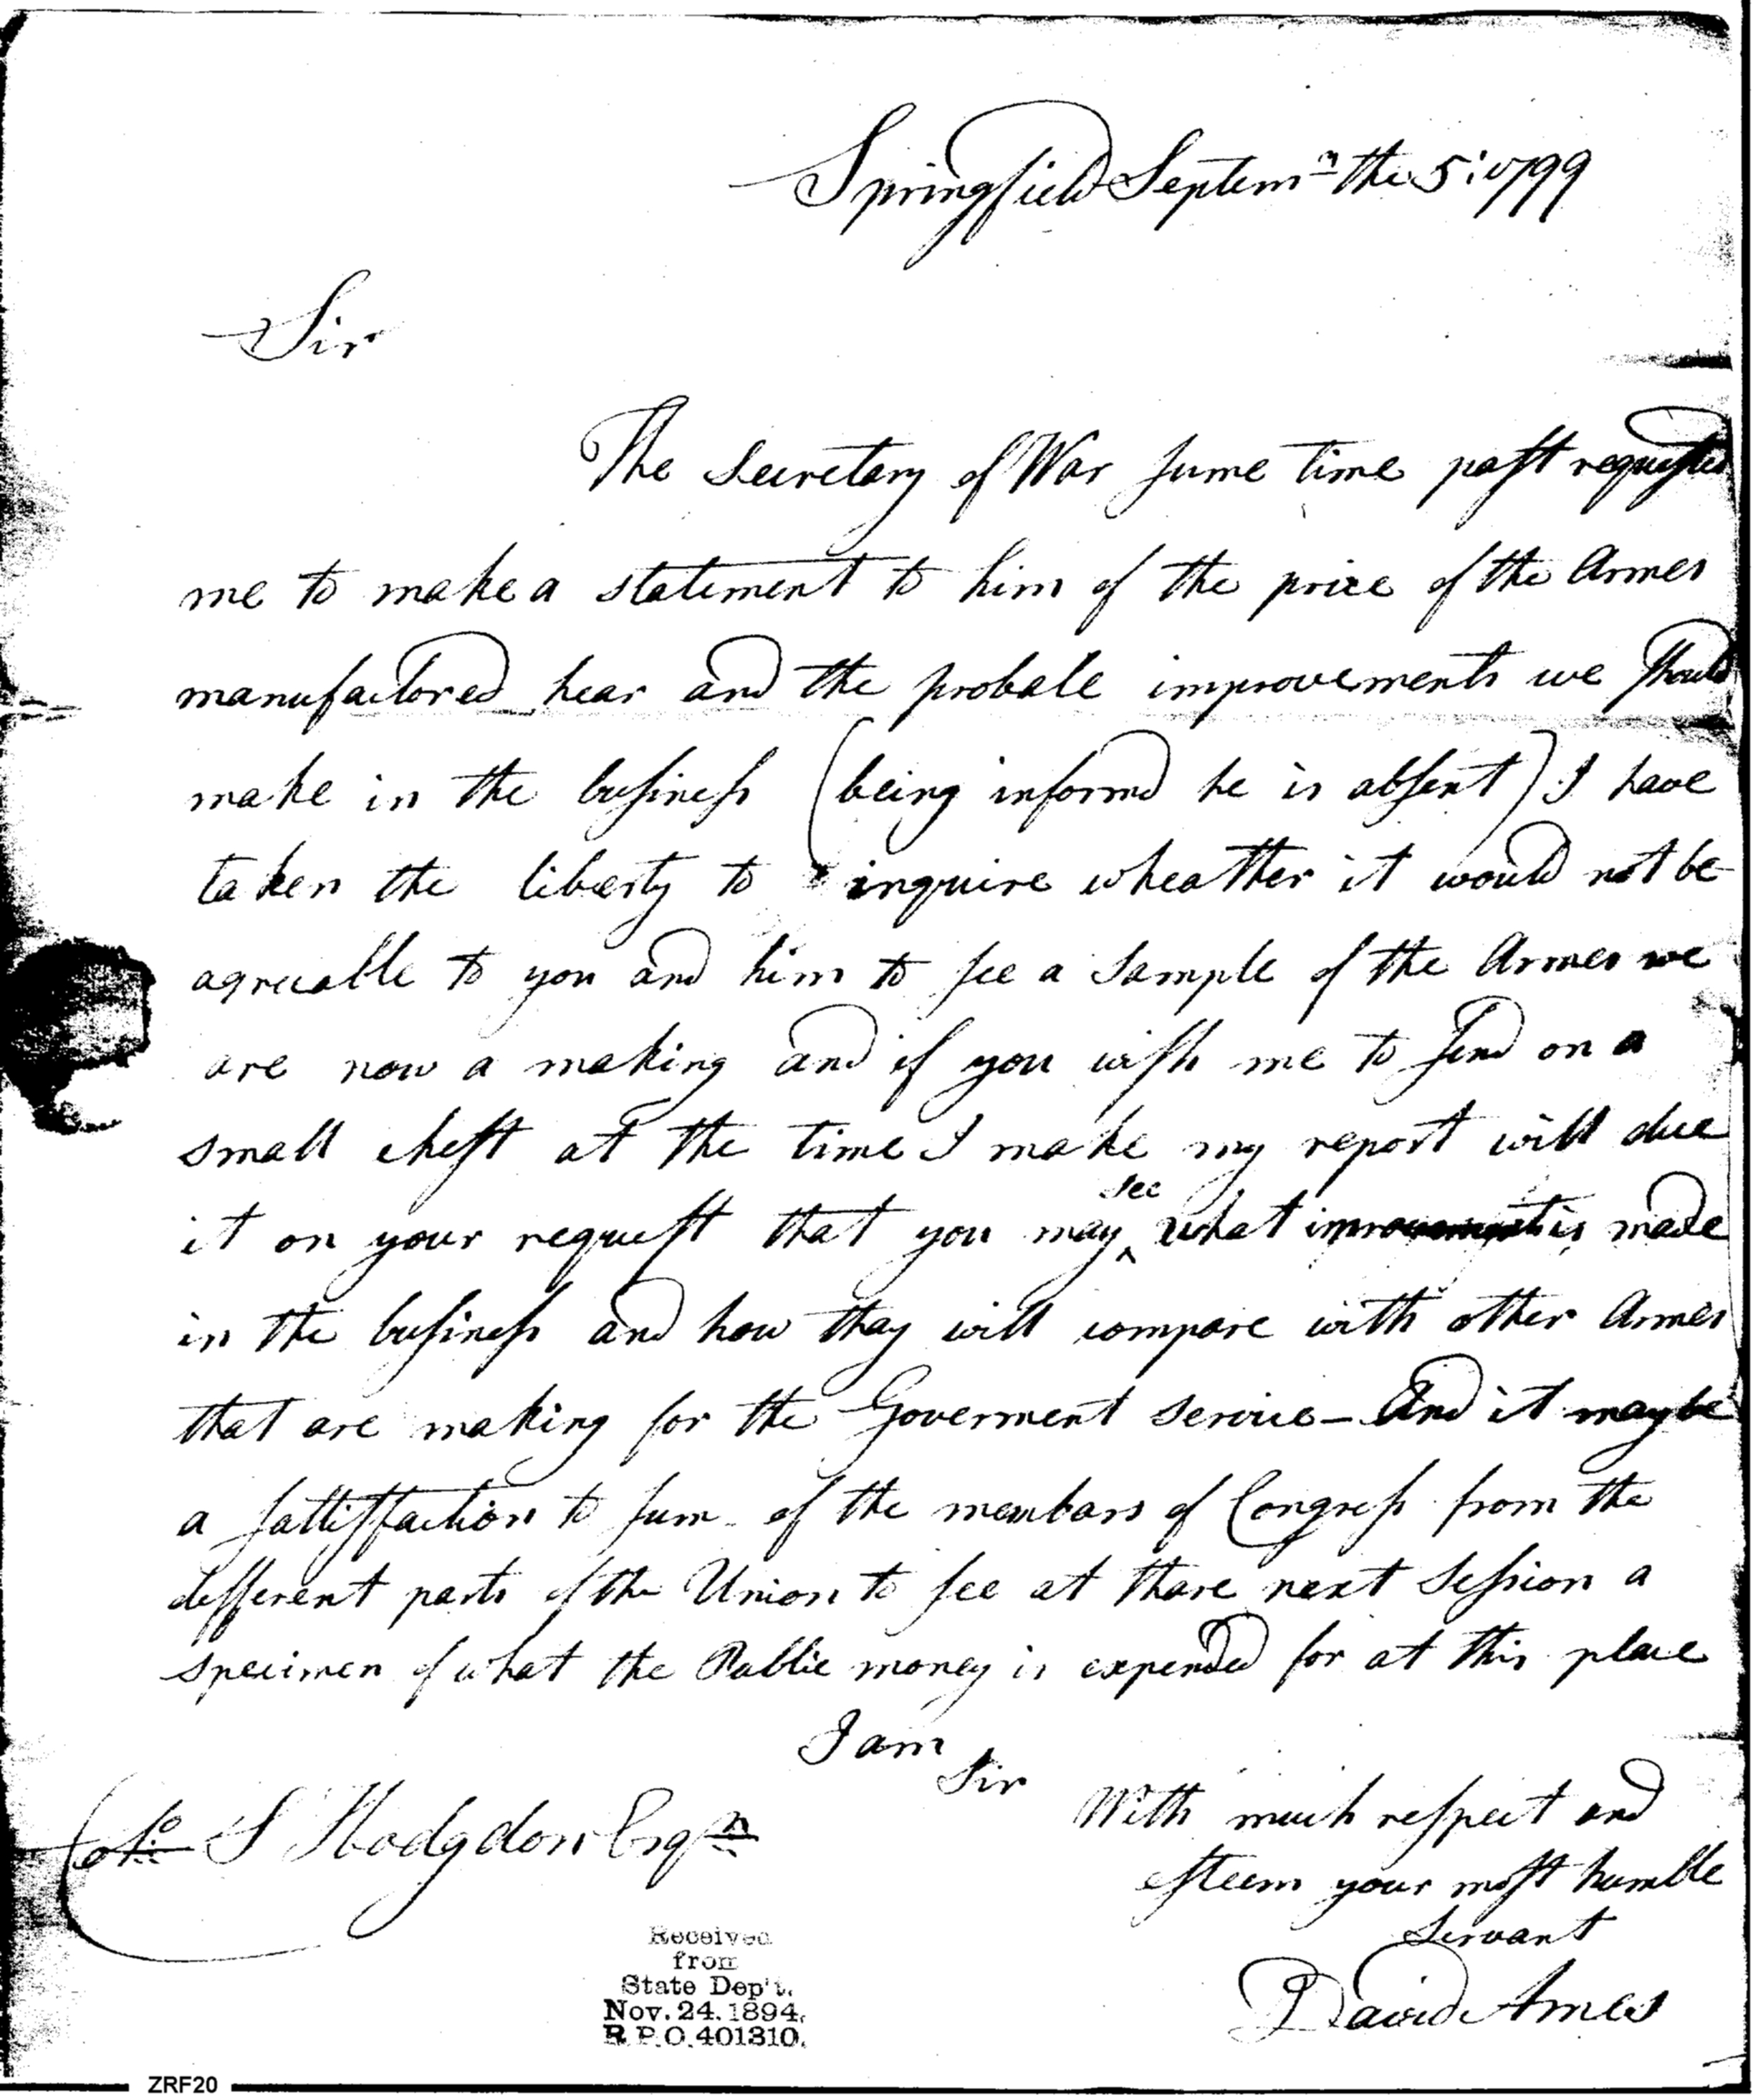 Springfield Septemr the 5: 1799
Sir
The Secretary of War sume time past requested
me to make a statement to him of the price of the Armes
manufactored hear and the probale improvements we should
make in the business (being informd he is absent) I have
taken the liberty to inquire wheather it would not be
agreeable to you and him to see a sample of the Armes we
are now a making and if you wish me to send on a
small chest at the time I make my report will due
it on your request that you may see what improvement is made
in the business and how thay will compare with other Armes
that are making for the Goverment Service - And it may be
a sattisfaction to sum of the membars of Congress from the
defferent parts of the Union to see at thare next Session a
specimen of what the Publie money is expended for at this place
I am
Sir
With much respect and
esteem your most humble
Servant
David Ames
Colo S Hodgdon Esqr
Received
from
State Dep't.
Nov. 24. 1894.
R. P. O. 401310.
ZRF20